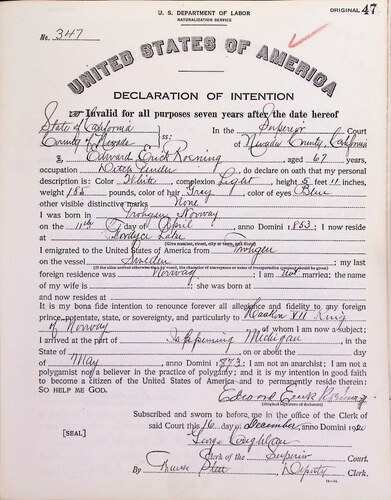 U. S. DEPARTMENT OF LABOR
NATURALIZATION SERVICE
ORIGINAL 47
No. 347
UNITED STATES OF AMERICA
DECLARATION OF INTENTION
Invalid for all purposes seven years after the date hereof
State of California
County of Nevada ss: In the Superior Court
of Nevada County, California
I, Edward Erick Roening, aged 67 years,
occupation Ditch Tender, do declare on oath that my personal
description is: Color White, complexion Light, height 5 feet 11 inches,
weight 185 pounds, color of hair Gray, color of eyes Blue
other visible distinctive marks None
I was born in Norway
on the 11th day of April, anno Domini 1853; I now reside
at Fordyce Lake
(Give number, street, city or town, and State)
I emigrated to the United States of America from
on the vessel Sweden; my last
(If the alien arrived otherwise than by vessel, the character of conveyance or name of transportation company should be given)
foreign residence was Norway; I am not married; the name
of my wife is; she was born at
and now resides at
It is my bona fide intention to renounce forever all allegiance and fidelity to any foreign
prince, potentate, state, or sovereignty, and particularly to Haakon VII King
of Norway of whom I am now a subject;
I arrived at the port of Michigan, in the
State of, on or about the day
of May, anno Domini 1873; I am not an anarchist; I am not a
polygamist nor a believer in the practice of polygamy; and it is my intention in good faith
to become a citizen of the United States of America and to permanently reside therein:
SO HELP ME GOD.
Edward Erick Roening
(Original signature of declarant)
Subscribed and sworn to before me in the office of the Clerk of
said Court this 16 day of December, anno Domini 1920
[SEAL]
George Coughlan
Clerk of the Superior Court.
By, Deputy Clerk.